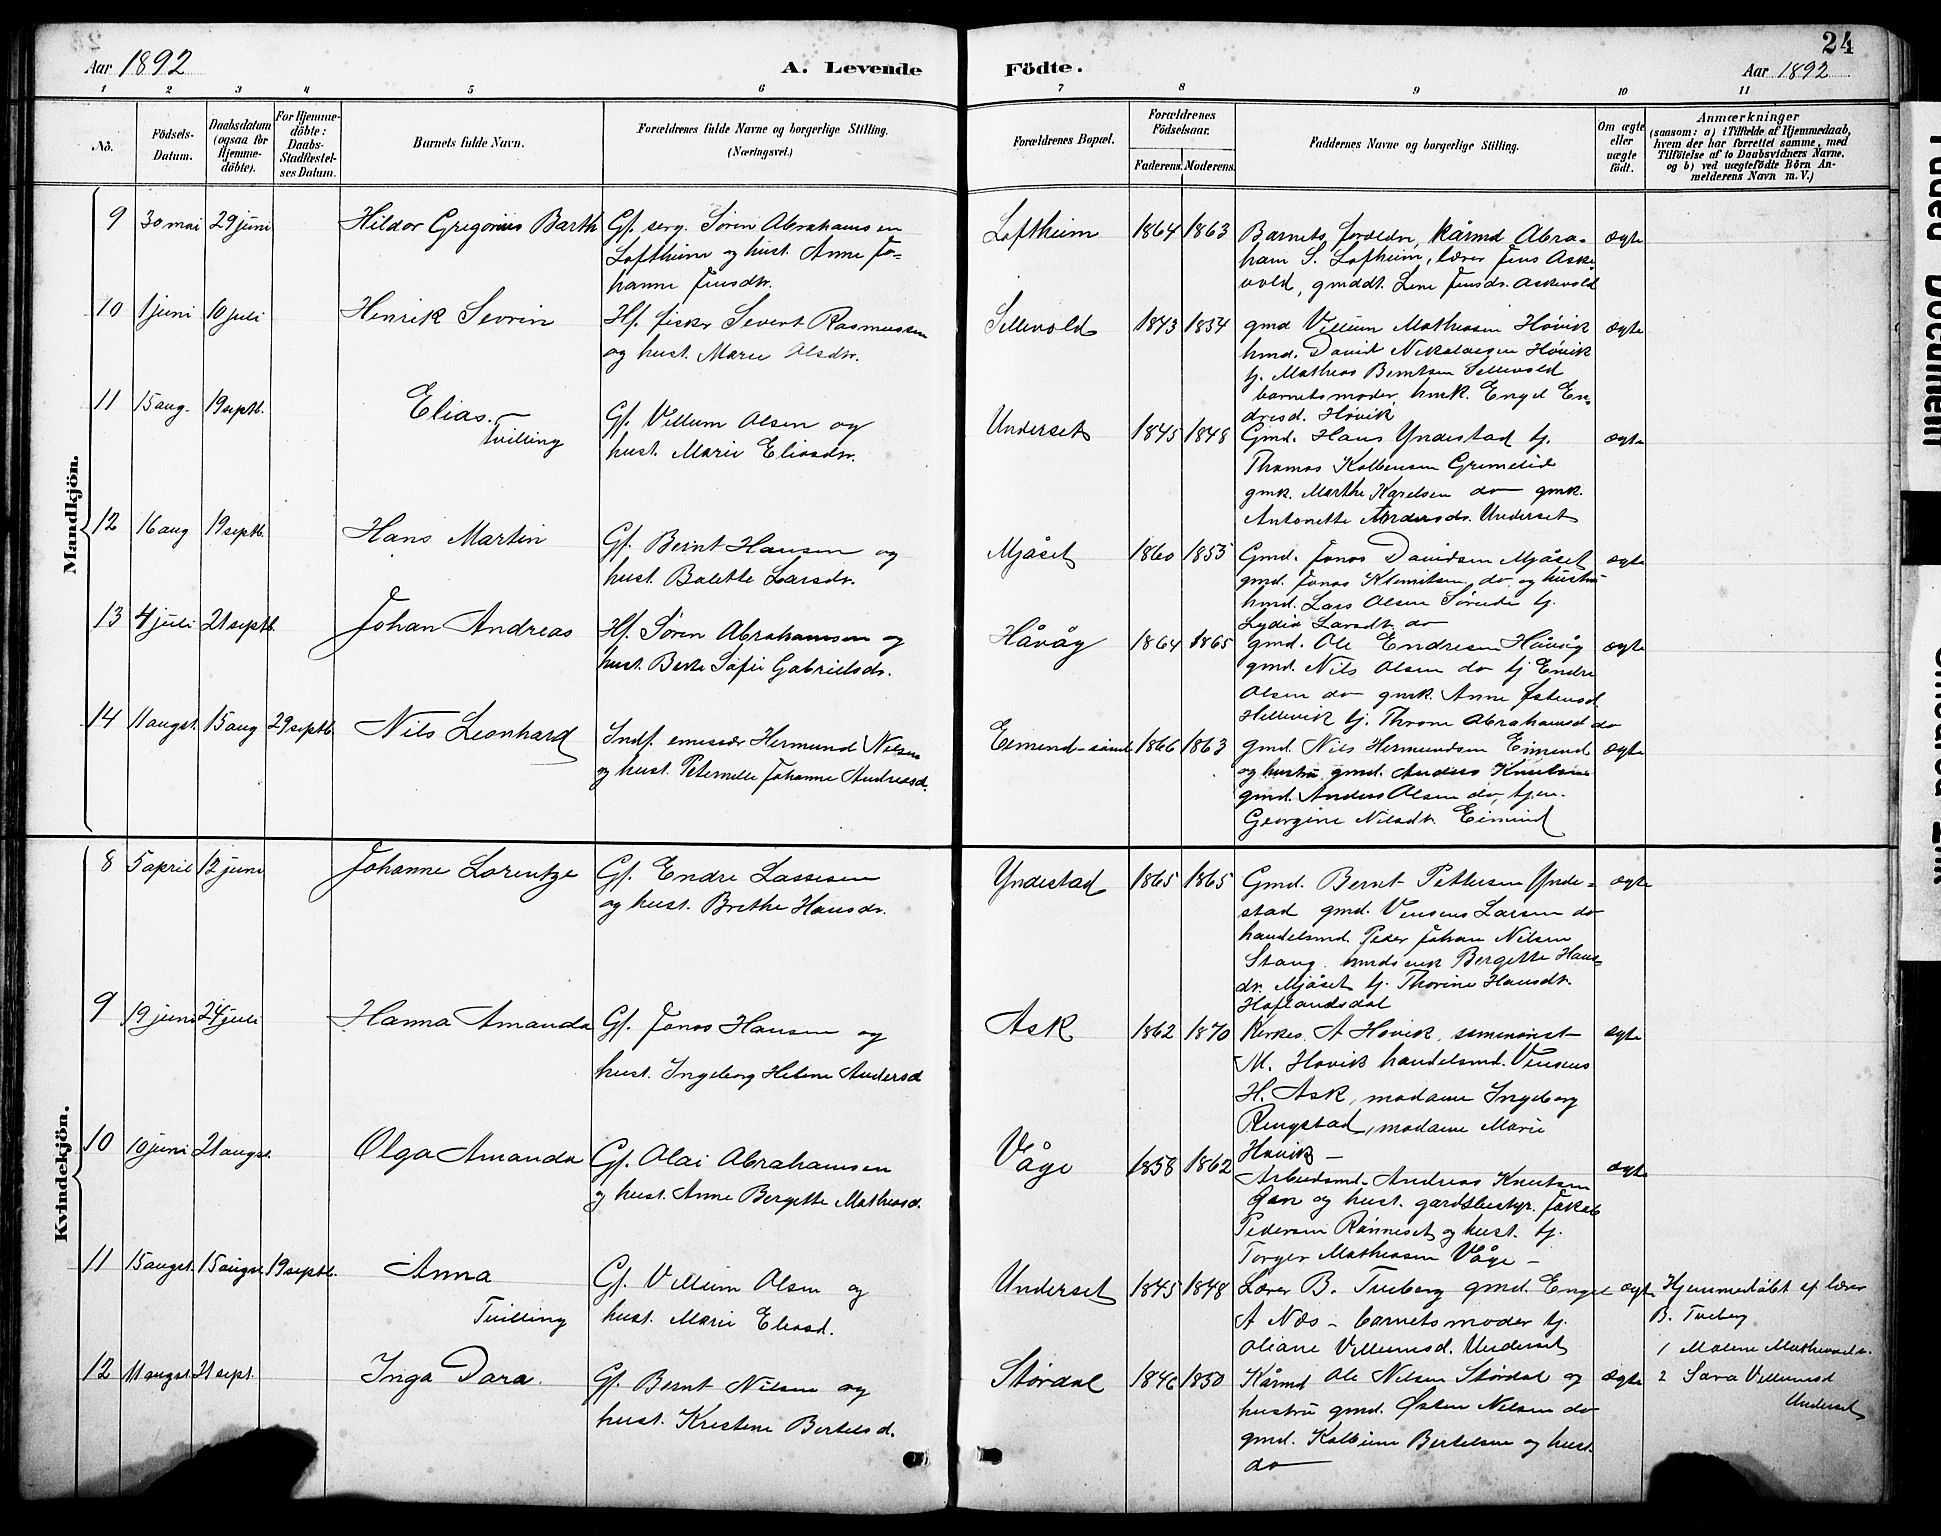 24
Aar 1892
A. Levende
Födte.
Aar 1892
1 2 3 4 5 6 7 8 9 10 11
No.
Födsels-Datum.
Daabsdatum (ogsaa for Hjemmedöbte).
For Hjemmedöbte: Daabs-Stadfæstelses Datum.
Barnets fulde Navn.
Forældrenes fulde Navne og borgerlige Stilling.
(Næringsvei.)
Forældrenes Bopæl.
Forældrenes Födselsaar.
Faderens. Moderens.
Faddernes Navne og borgerlige Stilling.
Om ægte eller uægte födt.
Anmærkninger
(saasom: a) i Tilfælde af Hjemmedaab, hvem der har forrettet samme, med Tilföielse af to Daabsvidners Navne, og b) ved uægtefödte Börn Anmelderens Navn m. V.)
Mandkjön.
9 30 mai 29 juni Hildor Gregorius Barth Gf. serg. Søren Abrahamsen
Loftheim og hust. Anne Jo-
hanne Jensdtr.
Loftheim 1864 1863 Barnets foreldre, kårmd Abra-
ham S. Lofheim, lærer Jens Aske
vold, gmddt. Lene Jensdr. Askevold
ægte
10 1 juni 10 juli Henrik Sevrin Hf. fisker Severt Rasmussen
og hust. Marie Olsdtr.
Sellevold 1843 1854 gmd Villum Mathiasen Høvik
hmd. David Nikolaisen Høvik
tj. Mathias Berntsen Sellevold
barnets moder, hmk. Engel En-
dresd. Høvik
ægte
11 15 aug. 19 septb. Elias. —
tvilling
Gf. Villum Olsen og
hust. Marie Eliasdr.
Underset 1845 1848 Gmd. Hans Yndestad tj.
Thomas Kolbensen Grimelid
gmk. Marthe Karelsen do gmk.
Antonette Andersdr. Underset
ægte
12 16 aug 19 septb. Hans Martin Gf. Bernt Hansen og
hust. Bolette Larsdr.
Mjåset 1860 1853 Gmd. Jonas Davidsen Mjåset
gmd. Jonas Klemitsen do. og hustru
hmd. Lars Olsen Sørude tj.
Lydia Larsdt. do
ægte
13 4 juli 21 septb. Johan Andreas Hf. Søren Abrahamsen og
hust. Berte Sofie Gabrielsdr.
Håvåg 1864 1865 gmd. Ole Endresen Håvåg
gmd. Nils Olsen do tj Endre
Olsen do gmk. Anne Østensd
Hellevik tj. Throne Abrahamsd do
ægte
14 11 augst. 15 aug 29 septb. Nils Leonhard Indf. emissær Hermund Nilsen
og hust. Peternelle Johanne Andreasd.
Eimind-sand 1866 1863 gmd. Nils Hermundsen Eimind
og hustru. gmd. Anders Knutsen
gmd. Anders Olsen do, tjen.
Georgine Nilsdtr. Eimind
ægte
Kvindekjön.
8 5 april 12 juni Johanne Lorentze Gf. Endre Lassesen
og hust. Brithe Hansdr.
Yndestad 1865 1865 Gmd. Bernt Pettersen Ynde-
stad gmd. Vensens Larsen do
handelsmd. Peder Johan Nilsen
Stang. Bergette Hans
dr. Mjåset tj. Thorine Hansdtr.
Hoflandsdal
ægte
9 19 juni 24 juli Hanna Amanda Gf. Jonas Hansen og
hust. Ingeborg Helene Andersd
Ask 1862 1870 Kirkes. A Hovik, seminarist
M. Hovik handelsmd. Vensens
H. Ask, madame Ingeborg
Ringstad, madame Marie
Hovik —
ægte
10 10 juni 21 augst. Olga Amanda Gf. Olai Abrahamsen
og hust. Anne Bergette Mathiasd.
Våge 1858 1862 Arbeidsmd. Andreas Knutsen
og hust. gardsbestyr. Jakob
Pedersen Rønneset og hust. tj.
Torger Mathiassen Våge —
ægte
11 15 augst. 15 augst. 19 septb. Anna
Tvilling
Gf. Villum Olsen og
hust. Marie Eliasd.
Underset 1845 1848 Lærer B. Tveberg gmd. Engel
A Næs — barnets moder tj.
Oliane Villumsd. Underset
ægt
Hjemmedøbt af lærer
B. Tveberg
1 Malene Mathiasdr.
2 Sara Villumsd
Underset
12 11 augst. 21 sept. Inga Dara. Gf. Bernt Nilsen og
hust. Kristine Bertelsd.
Størdal 1846 1850 Kårmd Ole Nilsen Størdal og
hustru gmd. Østen Nilsen do
gmd. Kolbein Bertelsen og hust.
do —
ægte